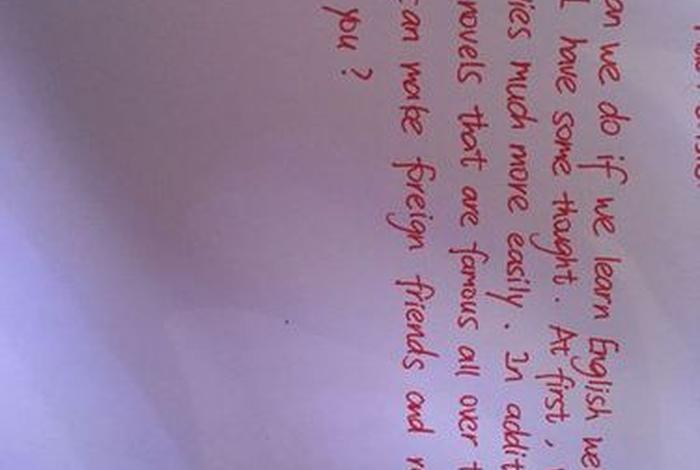 an we do if we learn English we
I have some thought. At first,
ies much more easily. In addit
novels that are famous all over t
can make foreign friends and
you?